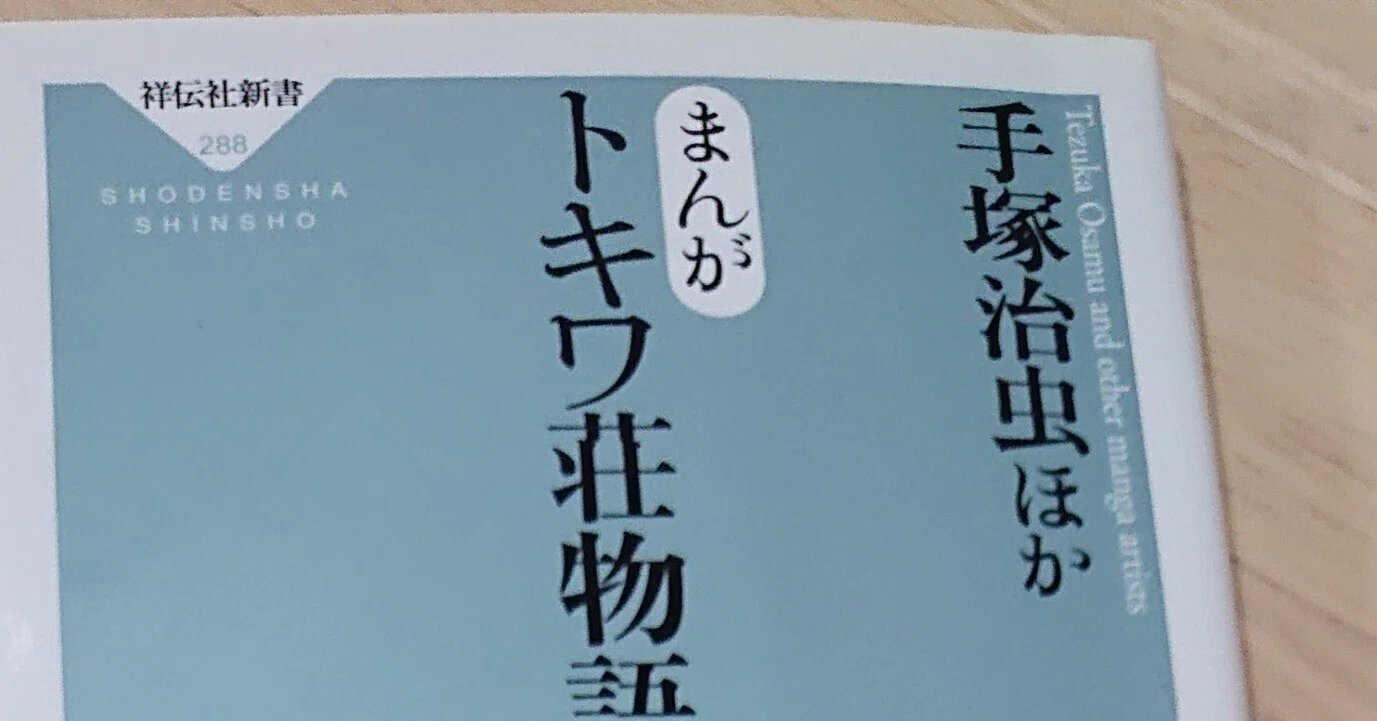 祥伝社新書
288
SHODENSHA
SHINSHO
Tezuka Osamu and other manga artists
手塚治虫ほか
まんが
トキワ荘物語